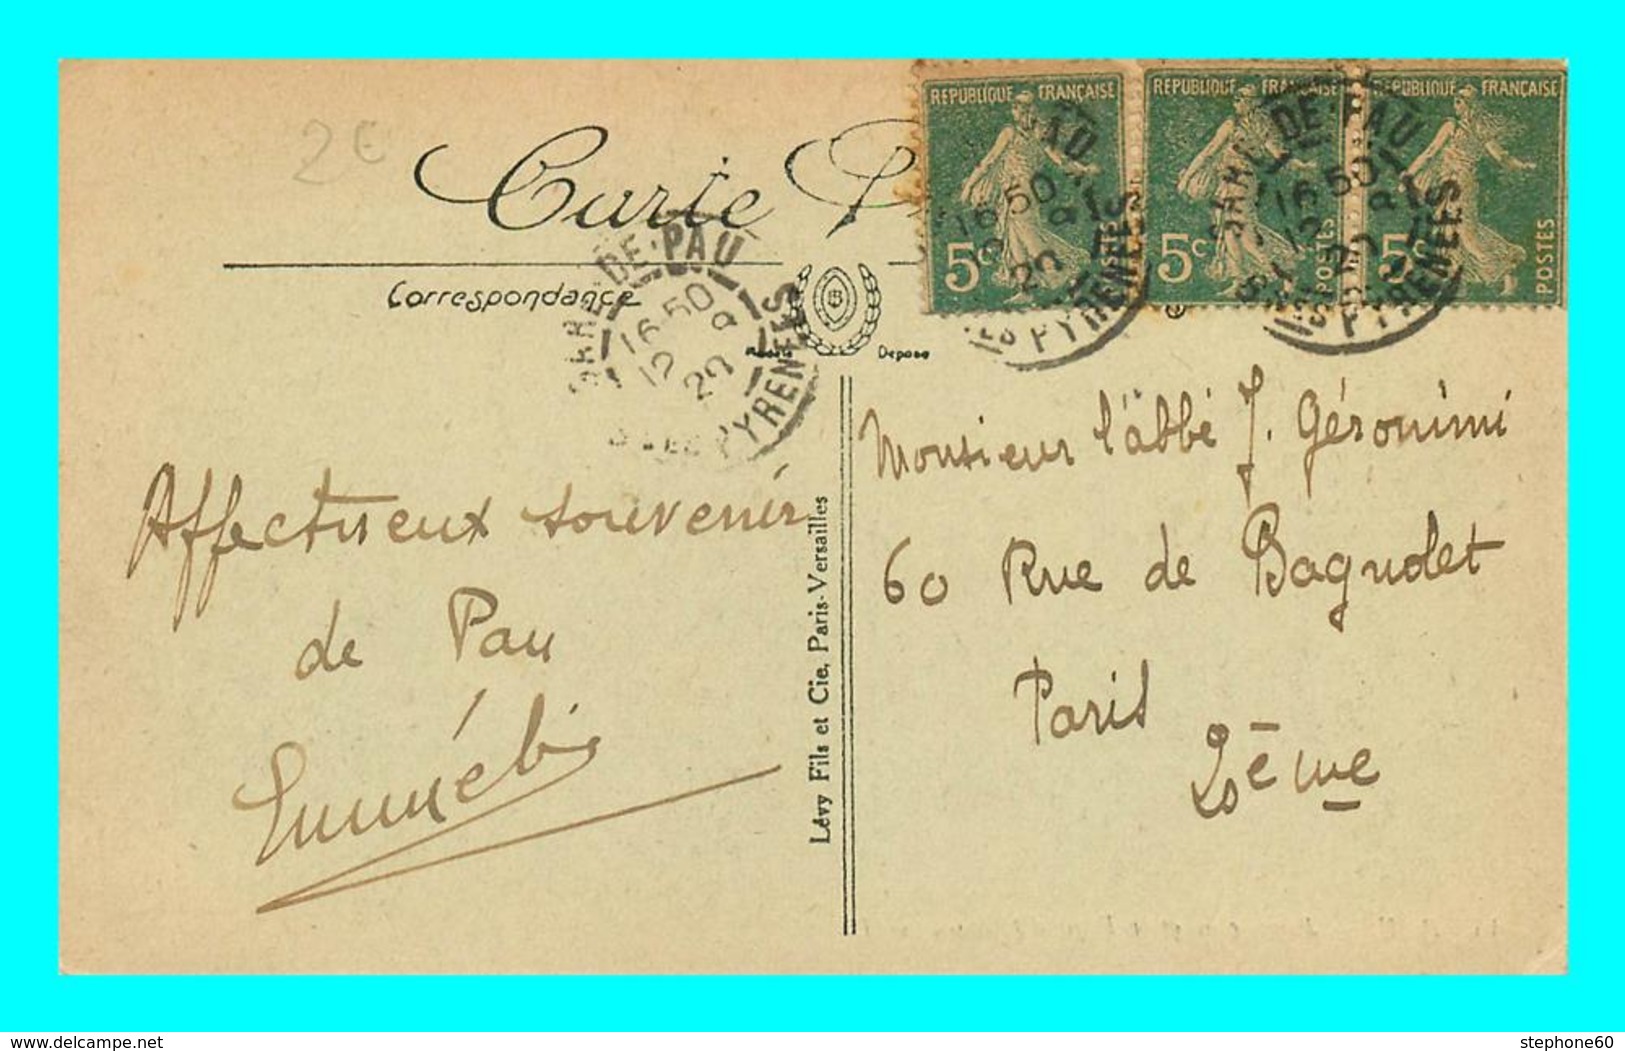 2€
Carte P
REPUBLIQUE FRANÇAISE
5c
POSTES
REPUBLIQUE FRANÇAISE
5c
POSTES
REPUBLIQUE FRANÇAISE
5c
POSTES
GARE DE PAU
16 50
12 9
20
PYRENEES
Correspondance
Modèle Déposé
Monsieur l'abbé J. Géronimi
60 Rue de Bagnolet
Paris
20ème
Affectueux souvenir
de Pau
Lévy Fils et Cie, Paris-Versailles
www.delcampe.net
stephone60